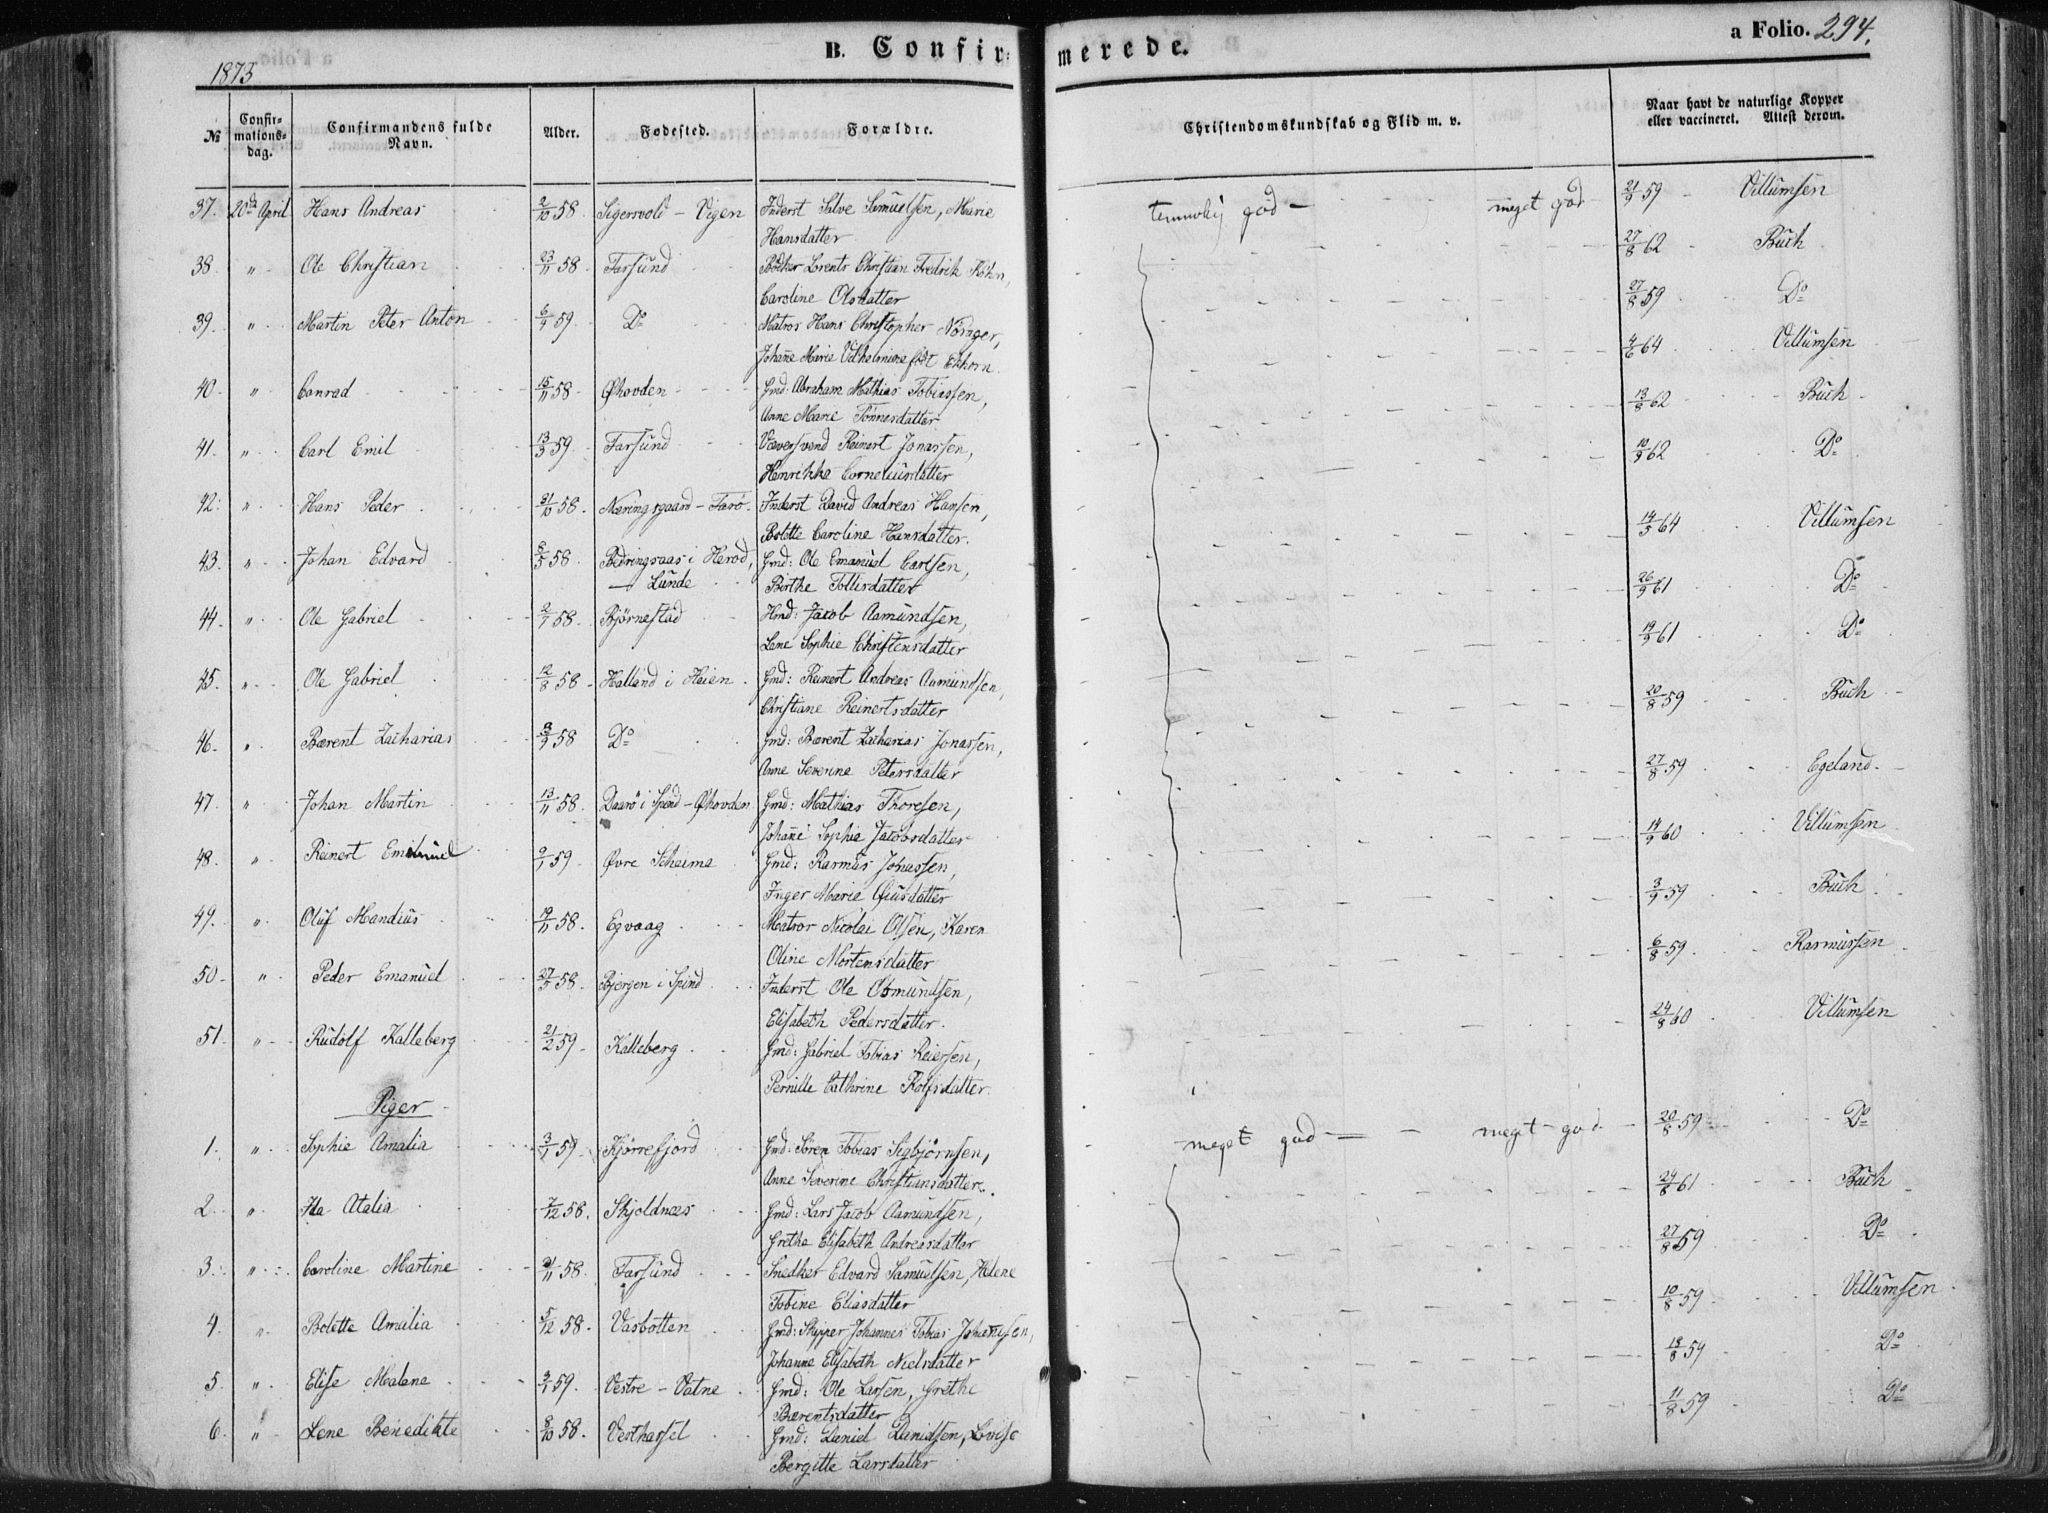 B. Confir= merede.
a Folio. 294.
1873
№ Confir-mations-dag. Confirmandens fulde Navn. Alder. Fødested. Forældre. Christendomskundskab og Flid m. v. Naar havt de naturlige Kopper eller vaccineret. Attest derom.
37. 20de April Hans Andreas 2/10 58 Sigersvold - Vigen Inderst Salve Samuelsen, Marie temmelig god - meget god 21/9 59 Villumsen
Hansdatter
38. " Ole Christian 23/11 58 Farsund Bødker Lorents Christian Fredrik Køhn, 27/8 62 Buch
Caroline Olsdatter
39. " Martin Peter Anton 6/9 59. Do Matros Hans Christopher Nörager, 27/8 59 Do
Johanne Marie Vilhelmine født Ekhorn.
40. " Conrad 15/11 58 Øhovden Gmd: Abraham Mathias Tobiassen, 4/6 64 Villumsen
Anne Marie Tönnesdatter
41. " Carl Emil 13/3 59. Farsund Væversvend Reinert Jonassen, 13/8 62 Buch
Henrikka Corneliusdatter
42. " Hans Peder 31/10 58. Næringsgaard - Farø. Inderst David Andreas Hansen, 10/9 62 Do
Bolette Caroline Hansdatter.
43. " Johan Edvard 8/5 58. Bedringsaas i Herad, Gmd: Ole Emanuel Carlsen, 14/5 64 Villumsen
- Lunde Birthe Tollisdatter
44. " Ole Gabriel 2/7 58. Bjørnestad Hmd: Jacob Aamundsen, 26/9 61 Do
Lene Sophie Christensdatter
45. " Ole Gabriel 12/8 58 Halland i Heien Gmd: Reinert Andreas Aamundsen, 19/9 61 Do
Christiane Reinertsdatter
46. " Bærent Zacharias 8/9 58 Do Gmd: Bærent Zacharias Jonassen, 20/8 59 Buch
Anne Severine Petersdatter
47. " Johan Martin 13/11 58. Daarø i Spind - Øhovden Gmd: Mathias Thoresen, 27/8 59 Egeland
Johanne Sophie Jacobsdatter
48. " Reinert Emanuel 9/1 59. Øvre Skeime Gmd: Rasmus Jonassen, 14/9 60 Villumsen
Inger Marie Øiusdatter
49. " Oluf Mandius 19/11 58. Egvaag Matros Nicolai Olsen, Karen 3/9 59 Buch
Oline Mortensdatter
50. " Peder Emanuel 27/5 58. Bjergen i Spind Inderst Ole Osmundsen, 6/8 59 Rasmussen
Elisabeth Pedersdatter.
51. " Rudolf Kalleberg 21/2 59. Kalleberg Gmd: Gabriel Tobias Reiersen, 24/8 60 Villumsen
Pernille Cathrine Rolfsdatter.
Piger
1. " Sophie Amalia 3/1 59. Kjørrefjord Gmd: Sören Tobias Sigbjörnsen, meget god - meget god 20/8 59 Do
Anne Severine Christiansdatter.
2. " Ida Atalia 7/12 58. Skjoldnæs Gmd: Lars Jacob Aamundsen, 24/8 61 Buch
Grethe Elisabeth Andreasdatter
3. " Caroline Martine 11 58. Farsund Snedker Edvard Samuelsen, Helene 27/8 59 Do
Tobine Eliasdatter
4. " Bolette Amalia 5/12 58. Vasbotten Gmd: Skipper Johannes Tobias Johannesen, 10/8 59 Villumsen
Johanne Elisabeth Nielsdatter
5. " Elise Malene 3/1 59. Vestre - Vatne Gmd: Ole Larsen, Grethe 13/8 59 Do
Bærentsdatter
6. " Lene Benedikte 8/10 58. Vesthassel Gmd: Daniel Danielsen, Lovise 11/8 59 Do
Bergitte Larsdatter